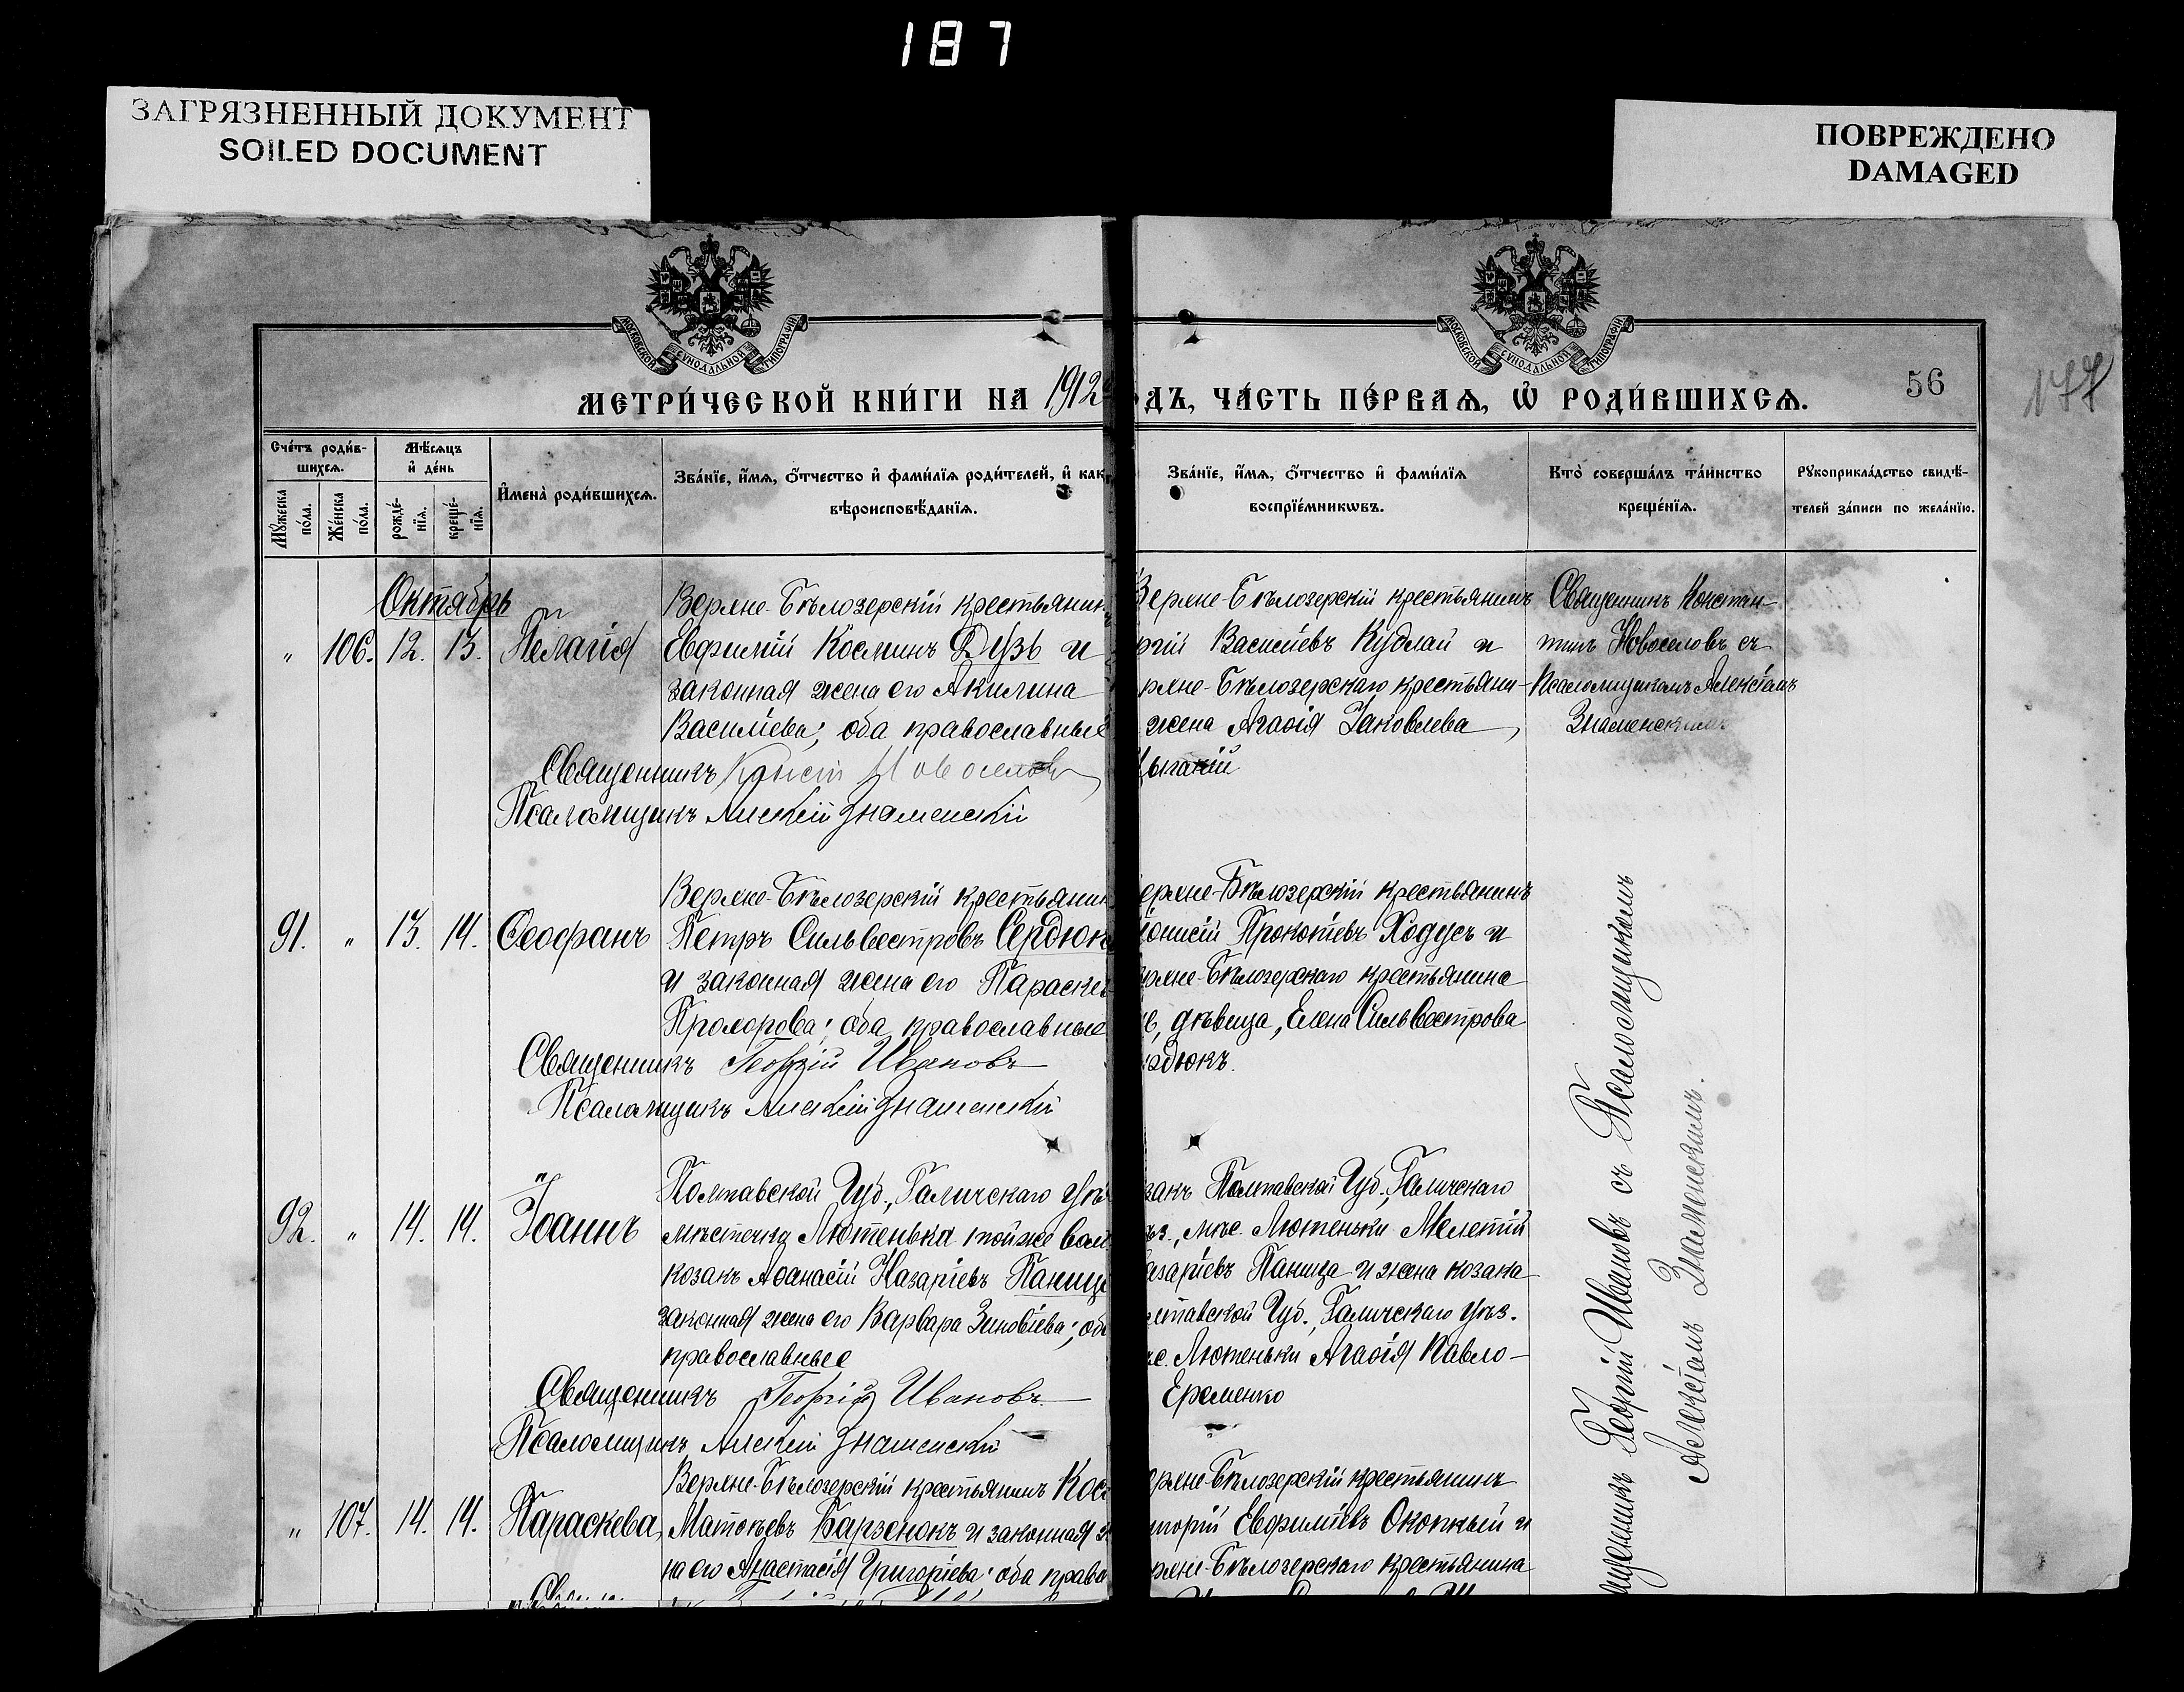 187
ЗАГРЯЗНЕННЫЙ ДОКУМЕНТ
SOILED DOCUMENT
ПОВРЕЖДЕНО
DAMAGED
МОСКОВСКОЙ СѴНОДАЛЬНОЙ ТИПОГРАФІИ
МОСКОВСКОЙ СѴНОДАЛЬНОЙ ТИПОГРАФІИ
МЕТРИ́ЧЕСКОЙ КНИ́ГИ НА 1912
ДЪ, ЧА́СТЬ ПЕ́РВАѦ, Ѡ҆ РОДИ́ВШИХСѦ.
56
177
Сче́тъ роди́в-
шихсѧ.
Мѣ́сѧцъ
и҆ де́нь
Мꙋ́жеска
по́ла.
Же́нска
по́ла.
рожде́-
нїѧ.
креще́-
нїѧ.
И҆мена̀ роди́вшихсѧ.
Зва́нїе, и҆́мѧ, ѻ҆́тчество и҆ фами́лїѧ роди́телей, и҆ как
вѣроисповѣ́данїѧ.
Зва́нїе, и҆́мѧ, ѻ҆́тчество и҆ фами́лїѧ
воспрїе́мникѡвъ.
Кто̀ соверша́лъ та́инство
креще́нїѧ.
Рꙋкоприкла́дство свидѣ́-
телей за́писи по жела́нїю.
Октябрь
„ 106. 12. 13. Пелагія
Верхне-Бѣлозерскій крестьянин
Евфимій Косминъ Дузь и
законная жена его Акилина
Василіева; оба православные
Священникъ Конст Новоселовъ
Псаломщикъ Алексій Знаменскій
Верхне-Бѣлозерскій крестьянинъ
ргій Василіевъ Кудлай и
рхне-Бѣлозерскаго крестьяни-
жена Агаѳія Іаковлева
Цыганій
Священникъ Констан-
тинъ Новоселовъ съ
Псаломщикомъ Алексіемъ
Знаменскимъ
91. „ 13. 14. Ѳеофанъ
Верхне-Бѣлозерскій крестьянин
Петръ Сильвестровъ Сердюк
и законная жена его Параскев
Прохорова; оба православные
Священникъ Георгій Ивановъ
Псаломщикъ Алексій Знаменскій
ерхне-Бѣлозерскій крестьянинъ
іонисій Прокопіевъ Ходусъ и
рхне-Бѣлозерскаго крестьянина
е, дѣвица, Елена Сильвестрова
рдюкъ.
92. „ 14. 14. Іоаннъ
Полтавской Губ., Гадичскаго уѣ
мѣстечка Лютенька той же вол
козакъ Аѳанасій Назаріевъ Паница
законная жена его Варвара Зиновіева; оба
православные
Священникъ Георгій Ивановъ
Псаломщикъ Алексій Знаменскій
закъ Полтавской Губ., Гадичскаго
ѣз., мѣс. Лютеньки Мелетій
азаріевъ Паница и жена козака
лтавской Губ., Гадичскаго уѣз.
ѣс. Лютеньки Агаѳія Павло-
Еременко
„ 107. 14. 14. Параскева
Верхне-Бѣлозерскій крестьянинъ Кос
Матѳѣевъ Барзенокъ и законная ж
на его Анастасія Григоріева; оба право
рхне-Бѣлозерскій крестьянинъ
игорій Евфиміевъ Окопный и
рхне-Бѣлозерскаго крестьянина
щенникъ Георгій Ивановъ съ Псаломщикомъ
Алексіемъ Знаменскимъ.